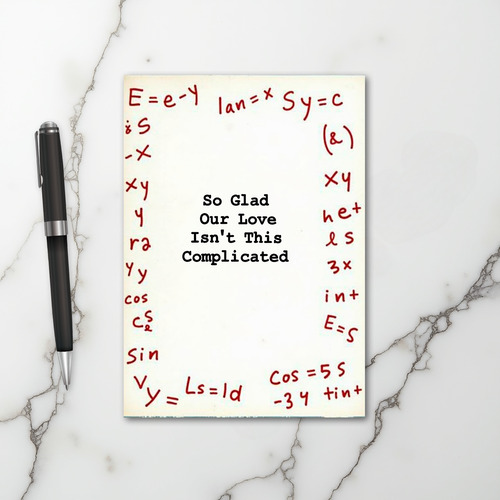 E = e - y lan = x Sy = c
(&)
- x
xy
y
xy
ra
het
yy
es
3x
cos
int
E = S
sin
So Glad
Our Love
Isn't This
Complicated
Cos = 5 S
Vy = Ls = ld
- 3 4 tint